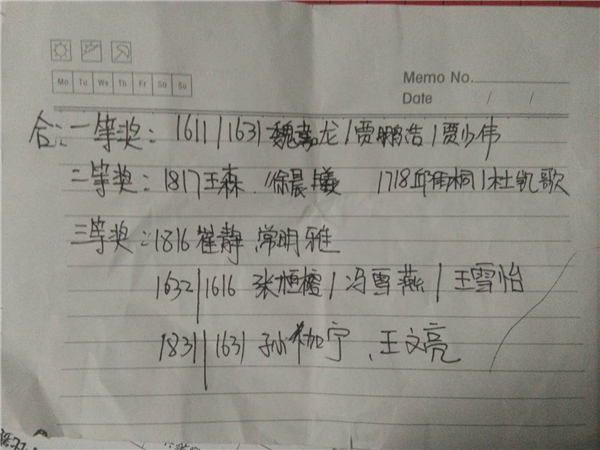 Mo Tu We Th Fr Sa Su
Memo No.
Date / /
合:一等奖:1611/1631魏嘉龙/贾鹏浩/贾少伟
二等奖:1817王森/徐晨曦 1718邱雨桐/杜凯歌
三等奖:1816崔静、常明雅
1632/1616 张恒榕/冯雪燕/王雪怡
1831/1631 孙伽宁、王文亮